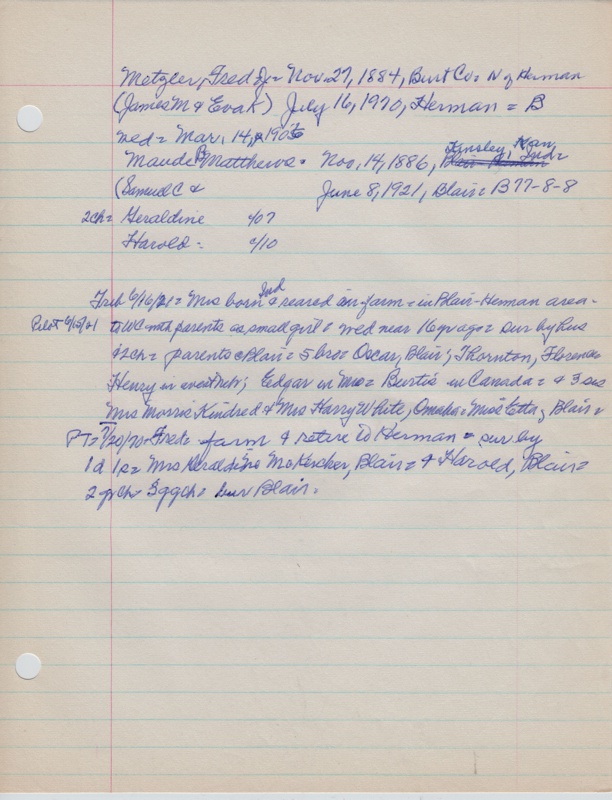 Metzler, Fred J = Nov. 27, 1884, Burt Co = N of Herman
(James M & Eva K) July 16, 1970, Herman = B
wed = Mar. 14, 1905
Kinsley, Kan,
Maude B Matthews = Nov. 14, 1886, Ind =
(Samuel C & June 8, 1921, Blair = B 77-8-8
2ch = Geraldine 4/07
Harold = c/10
Ind
Trib 6/16/21 = Mrs born & reared on farm = in Blair-Herman area -
Pilot 6/15/21 to WC with parents as small girl = wed near 16 yr ago = sur by hus
& 2ch = parents Blair = 5 bro = Oscar, Blair; Thornton, Florence
Henry in west Neb; Edgar in Mo = Burtis in Canada = & 3 sis
Mrs Morris Kindred & Mrs Harry White, Omaha = Miss Etta, Blair =
PT = 7/20/70 = Fred = farm & retire to Herman = sur by
1d 1s = Mrs Geraldine McKercher, Blair = & Harold, Blair =
2 grch = 3 ggch = bur Blair =